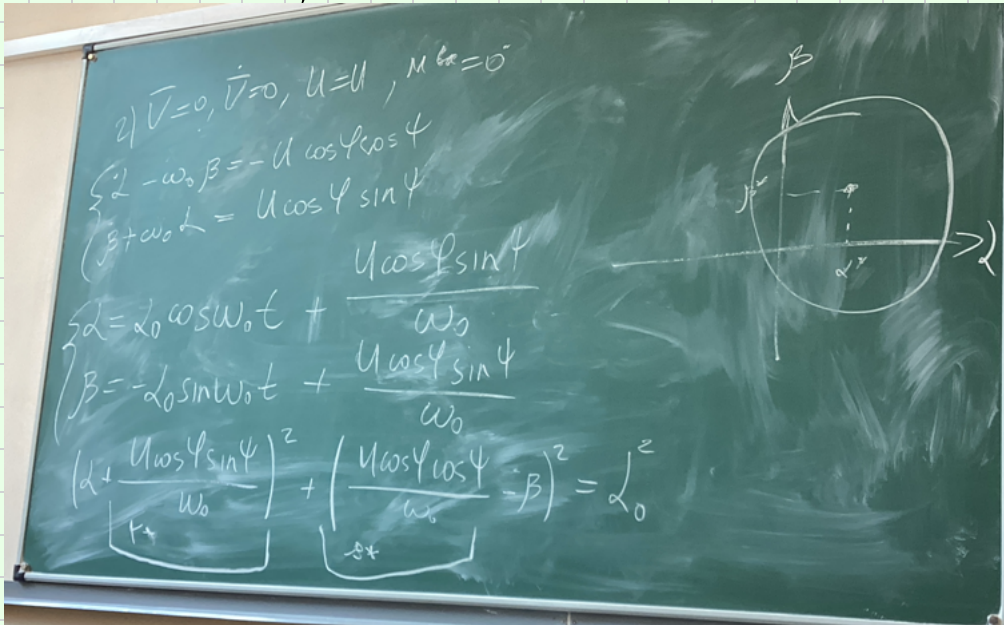 2) V̄=0, V̇=0, U=U, M^вх=0
{ α̇ - ω₀β = -U cosφ cosψ
β̇ + ω₀α = U cosφ sinψ
{ α = α₀ cosω₀t + U cosφ sinψ / ω₀
β = -α₀ sinω₀t + U cosφ sinψ / ω₀
(α + U cosφ sinψ / ω₀)² + (U cosφ cosψ / ω₀ - β)² = α₀²
β
β*
α*
α